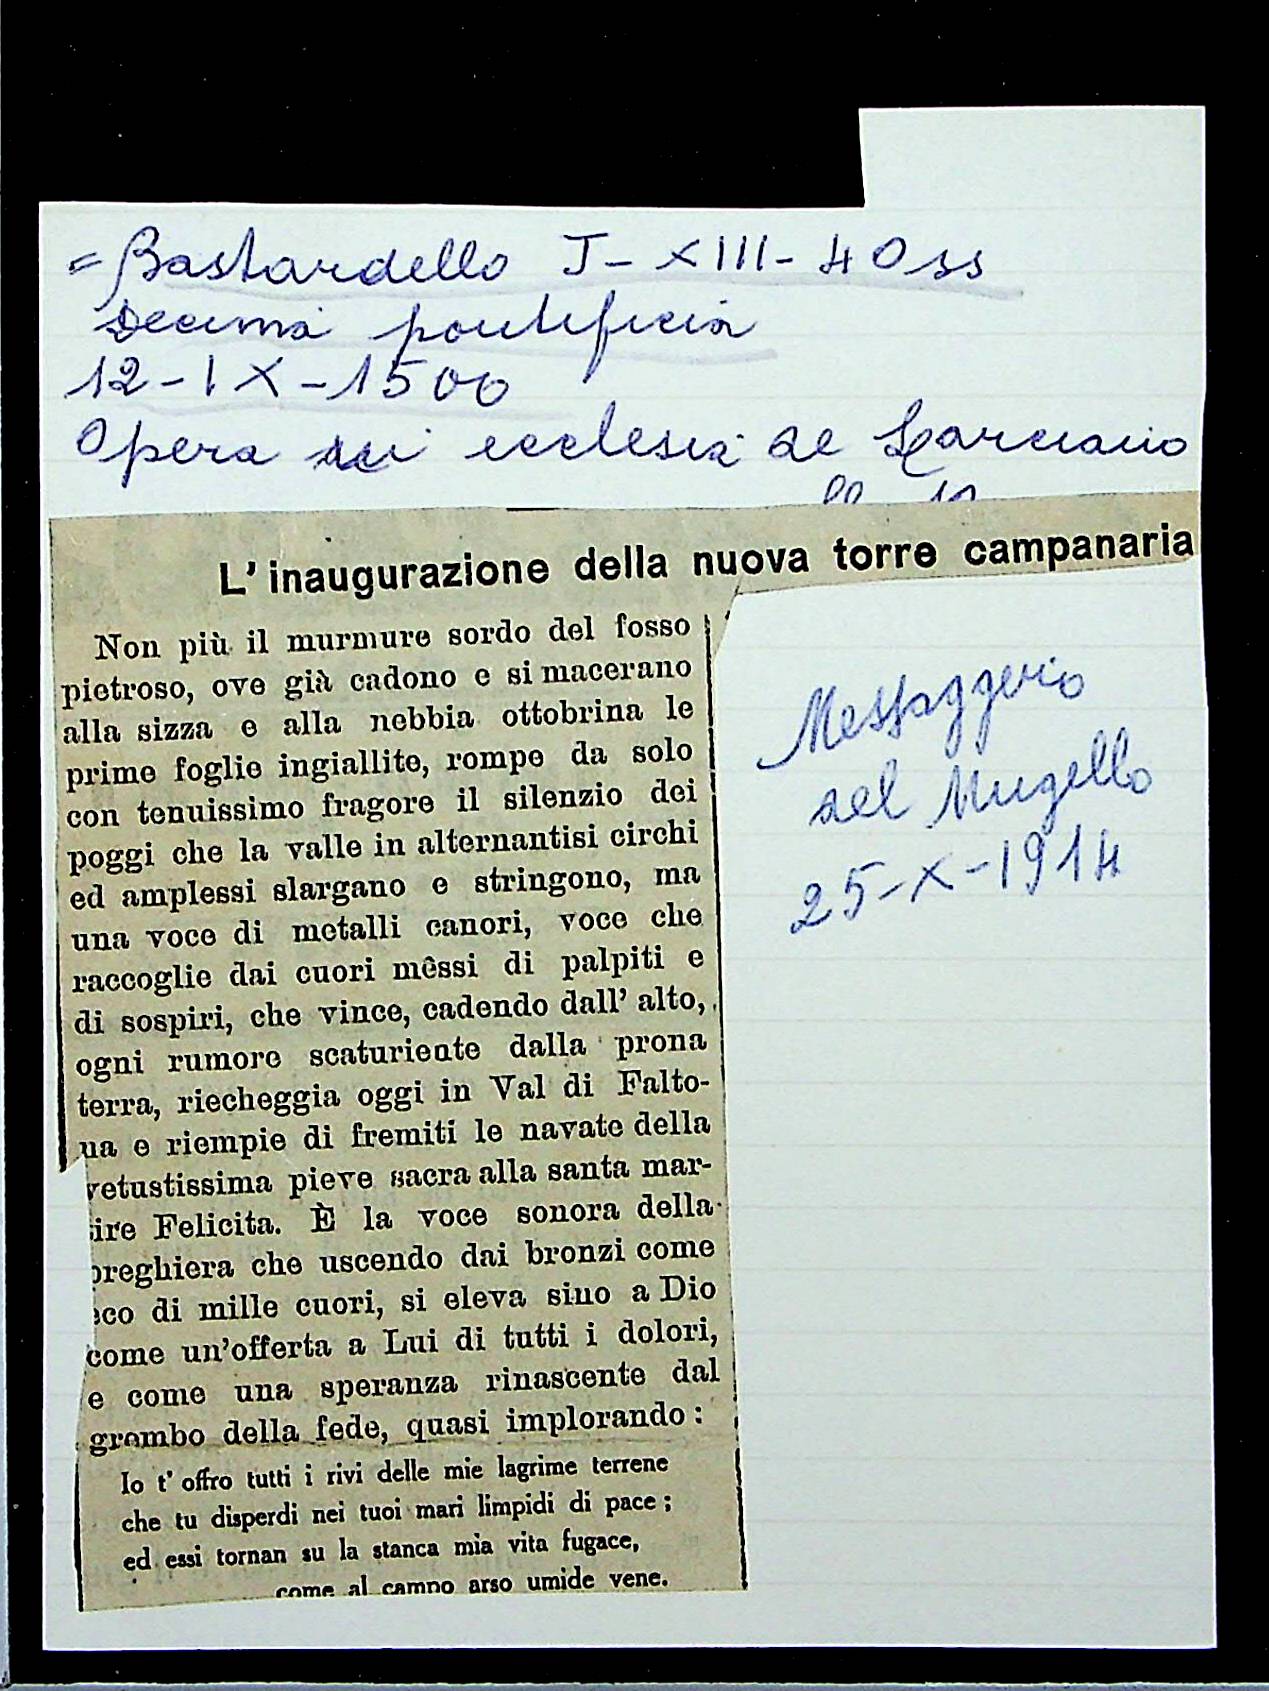 = Bastardello I - XIII - 4 0ss
Decima pontificia
12 - IX - 1500
Opera sci ecclesia de Larciano
L' inaugurazione della nuova torre campanaria
Non più il murmure sordo del fosso
pietroso, ove già cadono e si macerano
alla sizza e alla nebbia ottobrina le
prime foglie ingiallite, rompe da solo
con tenuissimo fragore il silenzio dei
poggi che la valle in alternantisi circhi
ed amplessi slargano e stringono, ma
una voce di metalli canori, voce che
raccoglie dai cuori mêssi di palpiti e
di sospiri, che vince, cadendo dall' alto,
ogni rumore scaturiente dalla prona
terra, riecheggia oggi in Val di Falto-
na e riempie di fremiti le navate della
vetustissima pieve sacra alla santa mar-
tire Felicita. È la voce sonora della
preghiera che uscendo dai bronzi come
eco di mille cuori, si eleva sino a Dio
come un'offerta a Lui di tutti i dolori,
e come una speranza rinascente dal
grembo della fede, quasi implorando :
Io t' offro tutti i rivi delle mie lagrime terrene
che tu disperdi nei tuoi mari limpidi di pace ;
ed essi tornan su la stanca mia vita fugace,
come al campo arso umide vene.
Messaggerio
del Mugello
25-X-1914